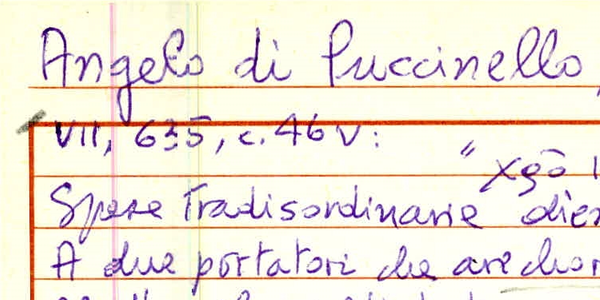 Angelo di Puccinello,
VII, 635, c. 46v:
" Xgō
Spese Tradisordinarie dier
A due portatori che arechor